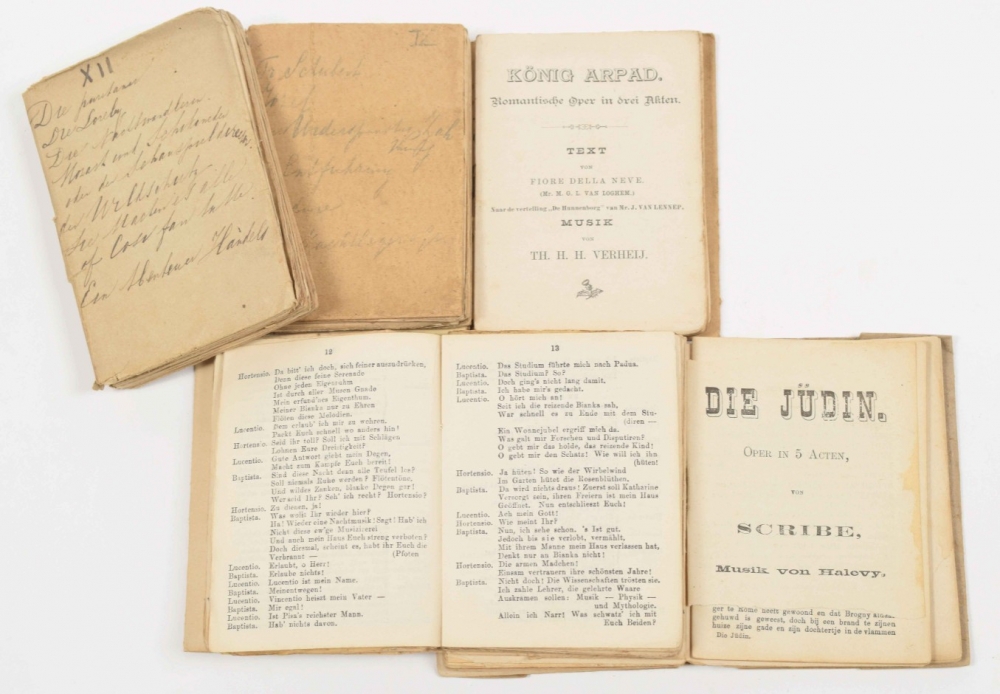 XII
Die
Die Loreley
Die
Mozart und Schikaneder
oder der Schauspieldirector
der Wildschütz
of Cosi fan tutte.
Ein Abenteuer Händels
IV
KÖNIG ARPAD.
Romantische Oper in drei Akten.
TEXT
VON
FIORE DELLA NEVE.
(Mr. M. G. L. VAN LOGHEM.)
Naar de vertelling „De Hunnenborg" van Mr. J. VAN LENNEP.
MUSIK
VON
TH. H. H. VERHEIJ.
12
Hortensio. Da bitt' ich doch, sich feiner auszudrücken,
Denn diese feine Serenade
Ohne jeden Eigenruhm
Ist durch aller Musen Gnade
Mein erfund'nes Eigenthum.
Meiner Bianka nur zu Ehren
Flöten diese Melodien.
Lucentio. Dem erlaub' ich mir zu wehren.
Packt Euch schnell wo anders hin!
Hortensio. Seid ihr toll? Soll ich mit Schlägen
Lohnen Eure Dreistigkeit?
Lucentio. Gute Antwort giebt mein Degen,
Macht zum Kampfe Euch bereit!
Baptista. Sind diese Nacht denn alle Teufel los?
Soll niemals Ruhe werden? Flörentöne,
Und wildes Zanken, blanke Degen gar!
Wer seid Ihr? Seh' ich recht? Hortensio?
Hortensio. Zu dienen, ja!
Baptista. Was wollt Ihr wieder hier?
Ha! Wieder eine Nachtmusik! Sagt! Hab' ich
Nicht diese ew'ge Musiziererei
Und auch mein Haus Euch streng verboten?
Doch diesmal, scheint es, habt ihr Euch die
(Pfoten
Verbrannt —
Lucentio. Erlaubt, o Herr!
Baptista. Erlaube nichts!
Lucentio. Lucentio ist mein Name.
Baptista. Meinentwegen!
Lucentio. Vincentio heisst mein Vater —
Baptista. Mir egal!
Lucentio. Ist Pisa's reichster Mann.
Baptista. Hab' nichts davon.
13
Lucentio. Das Studium führte mich nach Padua.
Baptista. Das Studium? So?
Lucentio. Doch ging's nicht lang damit,
Baptista. Ich habe mir's gedacht.
Lucentio. O hört mich an!
Seit ich die reizende Bianka sah,
War schnell es zu Ende mit dem Stu-
(diren —
Ein Wonnejubel ergriff mich da.
Was galt mir Forschen und Disputiren?
O gebt mir das holde, das reizende Kind!
O gebt mir den Schatz! Wie will ich ihn
(hüten!
Hortensio. Ja hüten! So wie der Wirbelwind
Im Garten hütet die Rosenblüthen.
Baptista. Da wird nichts draus! Zuerst soll Katharine
Versorgt sein, ihren Freiern ist mein Haus
Geöffnet. Nun entschliesst Euch!
Lucentio. Ach mein Gott!
Hortensio. Wie meint Ihr?
Baptista. Nun, ich sehe schon, 's Ist gut.
Jedoch bis sie verlobt, vermählt,
Mit ihrem Manne mein Haus verlassen hat,
Denkt nur an Bianka nicht!
Hortensio. Die armen Mädchen!
Einsam vertrauern ihre schönsten Jahre!
Baptista. Nicht doch! Die Wissenschaften trösten sie.
Ich zahle Lehrer, die gelehrte Waare
Auskramen sollen: Musik — Physik —
und Mythologie.
Allein ich Narr! Was schwatz' ich mit
Euch Beiden?
DIE JÜDIN.
OPER IN 5 ACTEN,
VON
SCRIBE,
Musik von Halevy,
ger te Rome heeft gewoond en dat Brogny
gehuwd is geweest, doch bij een brand te zijnen
huize zijne gade en zijn dochtertje in de vlammen
Die Jüdin.